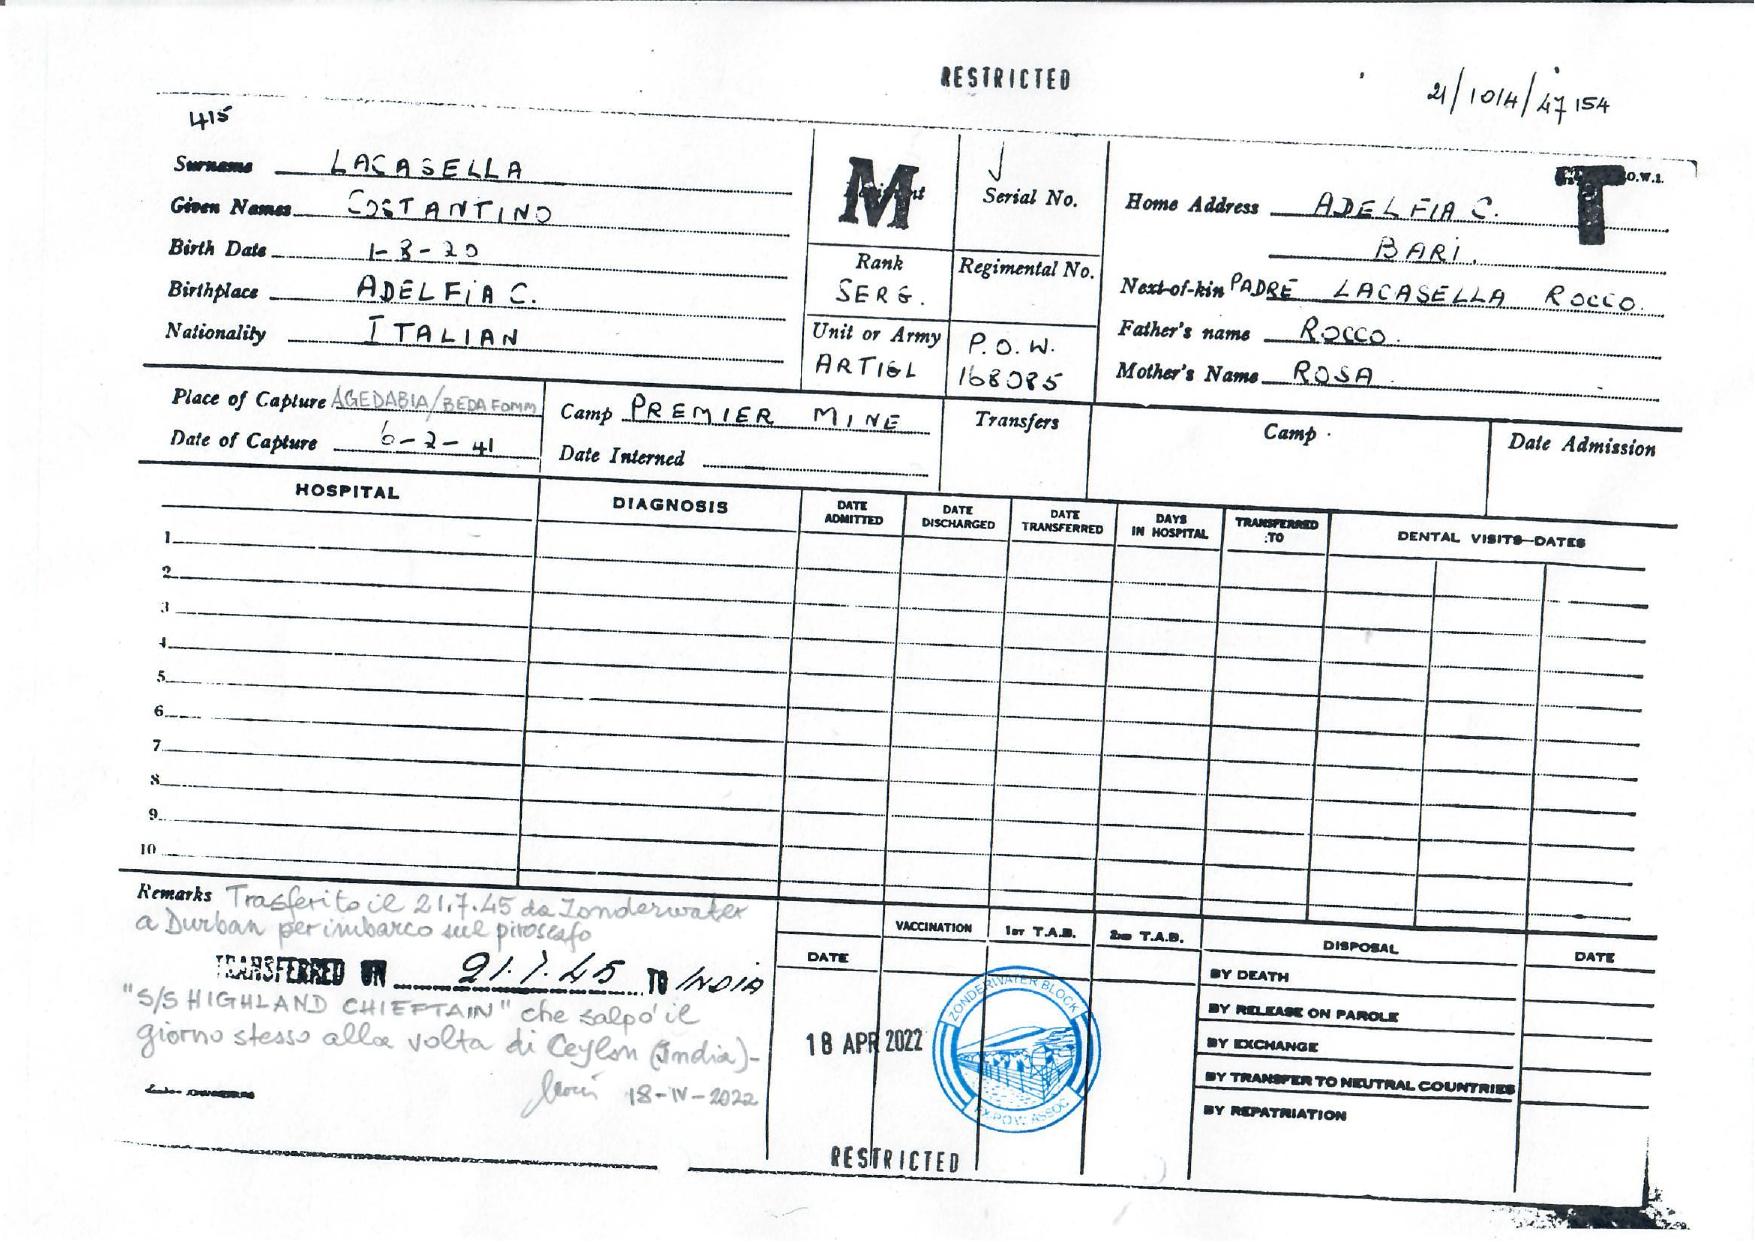 RESTRICTED
21/1014/47154
415
Surname LACASELLA
Given Names COSTANTINO
Birth Date 1-3-20
Birthplace ADELFIA C.
Nationality ITALIAN
M
Serial No.
Rank
SERG.
Regimental No.
Unit or Army
ARTIGL
P.O.W.
168085
T
O.W.1.
Home Address ADELFIA C.
BARI.
Next-of-kin PADRE LACASELLA ROCCO.
Father's name ROCCO.
Mother's Name ROSA
Place of Capture AGEDABIA/BEDA FOMM
Date of Capture 6-2-41
Camp PREMIER MINE
Date Interned
Transfers
Camp
Date Admission
HOSPITAL
DIAGNOSIS
DATE ADMITTED
DATE DISCHARGED
DATE TRANSFERRED
DAYS IN HOSPITAL
TRANSFERRED TO
DENTAL VISITS—DATES
1
2
3
4
5
6
7
8
9
10
Remarks Trasferito il 21.7.45 da Zonderwater
a Durban per imbarco sul piroscafo
TRANSFERRED ON 21.7.45 TO INDIA
"S/S HIGHLAND CHIEFTAIN" che salpò il
giorno stesso alla volta di Ceylon (India)-
18-IV-2022
DATE
VACCINATION
1st T.A.B.
2nd T.A.B.
18 APR 2022
ZONDERWATER BLOCK
EX P.O.W. ASSOC.
DISPOSAL
DATE
BY DEATH
BY RELEASE ON PAROLE
BY EXCHANGE
BY TRANSFER TO NEUTRAL COUNTRIES
BY REPATRIATION
RESTRICTED